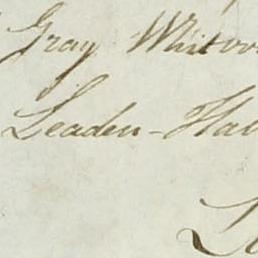 Gray Whitwo
Leaden-Hal
Lo